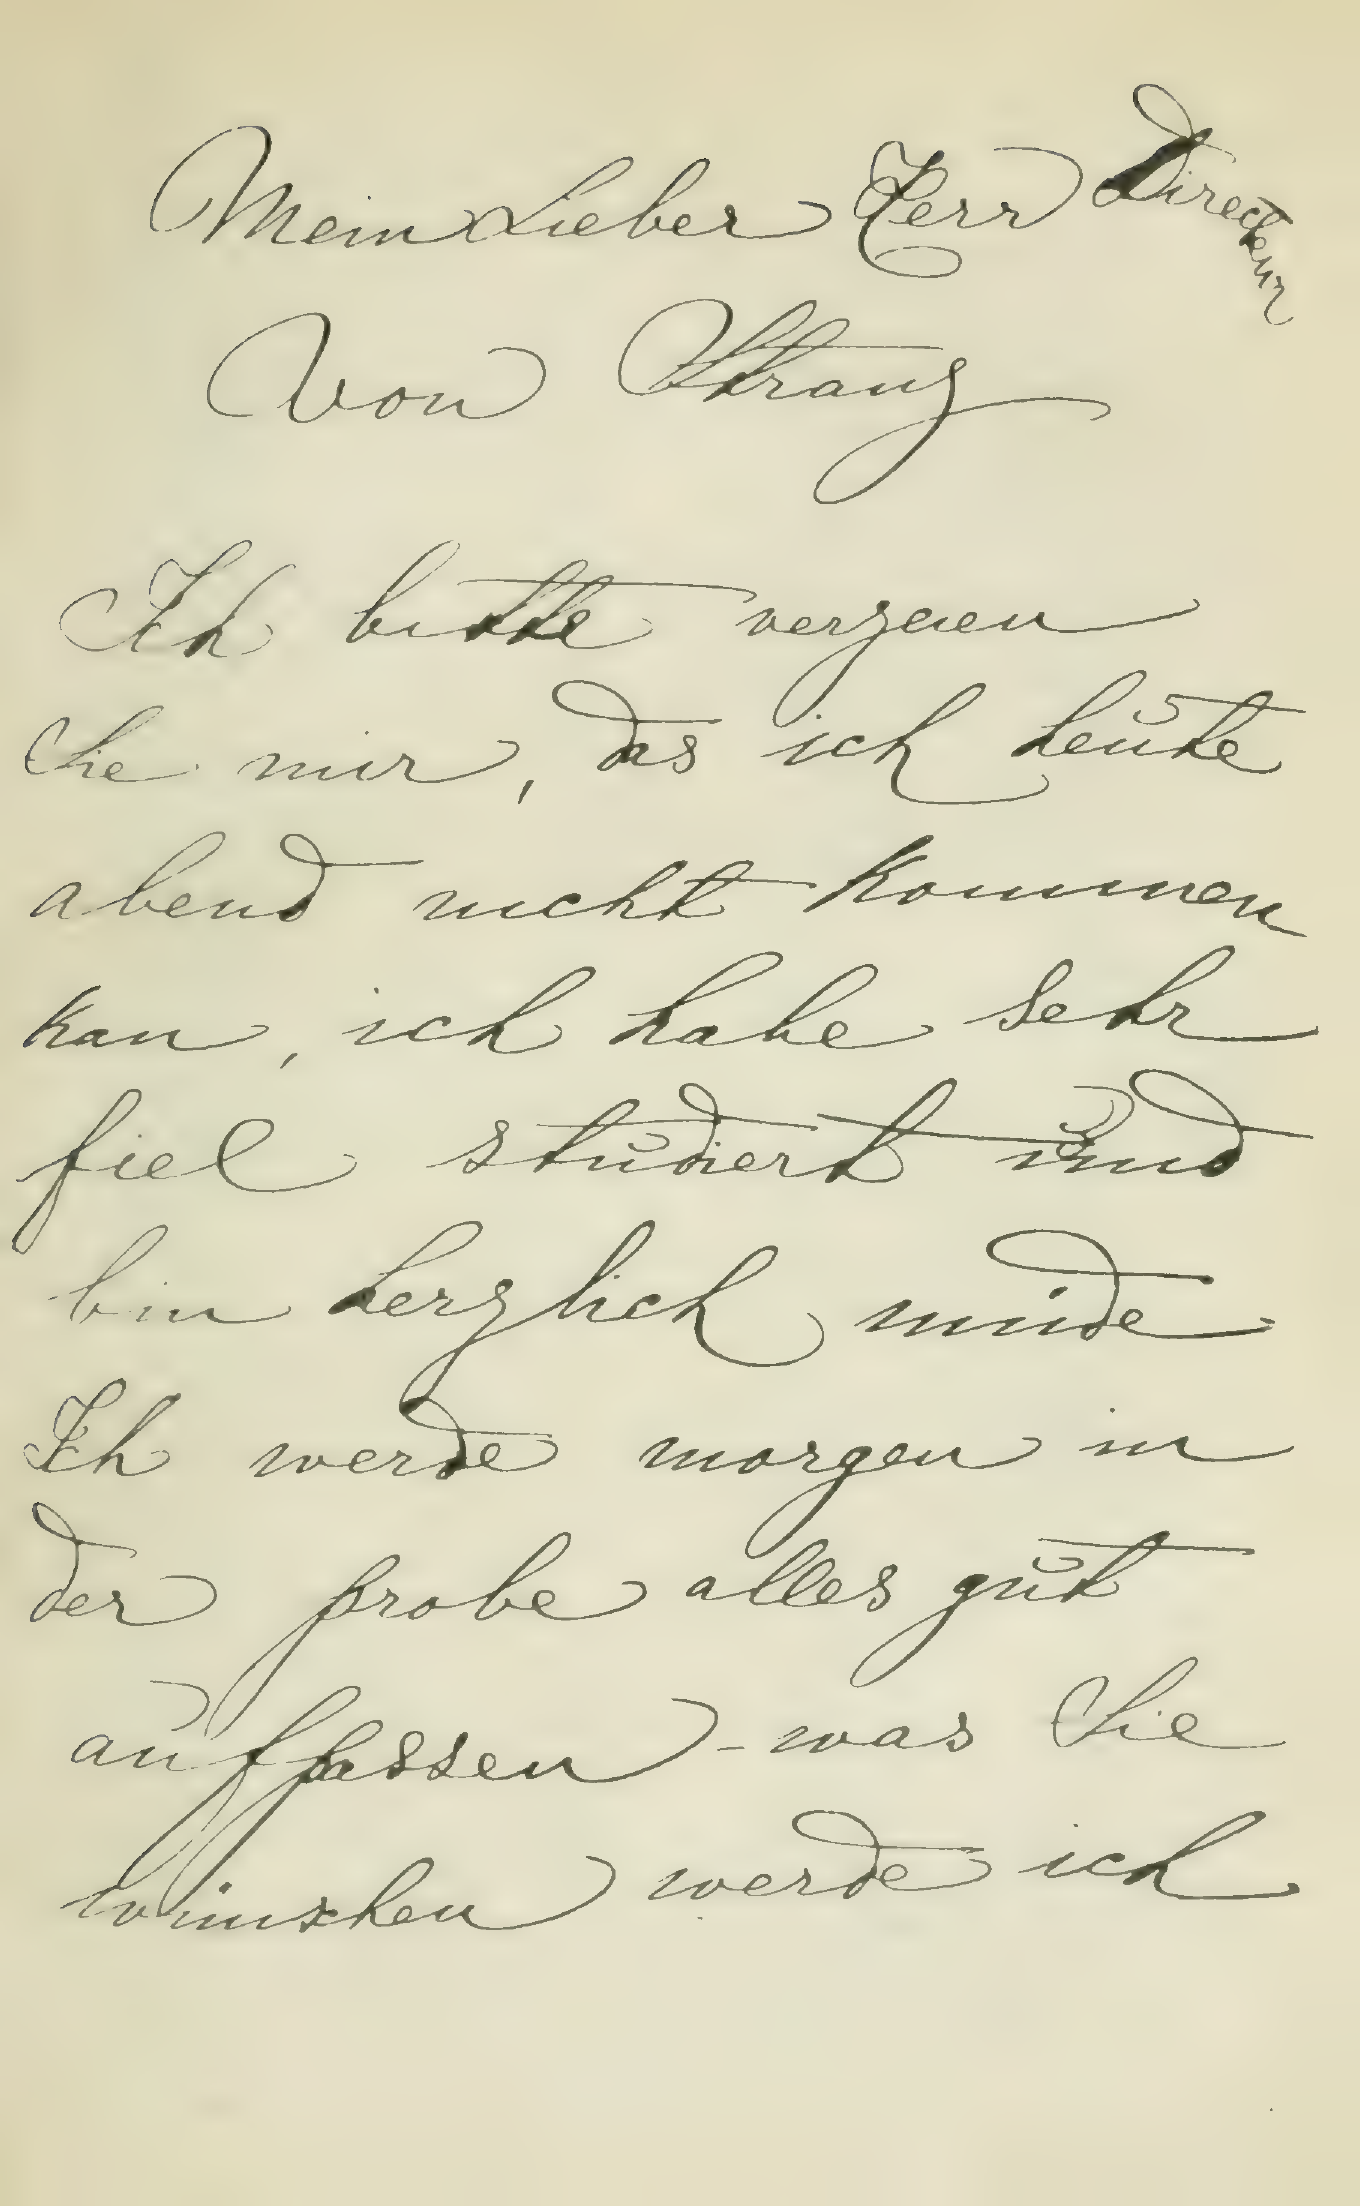 Mein Lieber Herr Directeur
Von Stranz
Ich bitte verzeien
Sie mir, das ich heute
abend nicht kommen
kan, ich habe sehr
fiel studiert und
bin herzlich müde
Ich werde morgen in
der probe alles gut
auffassen - was Sie
wünschen werde ich